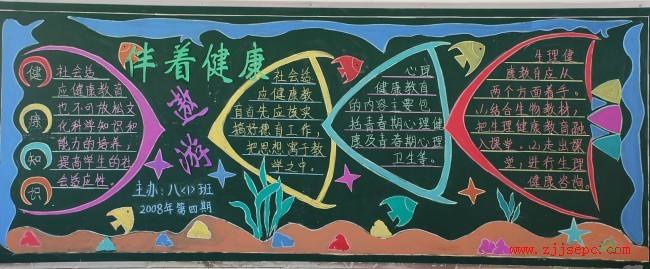 健康知识
社会适
应健康教育
也不可放松文
化科学知识和
能力的培养,
提高学生的社
会适应性。
伴着健康
遨游
主办:八<1>班
2008年第四期
社会适
应健康教
育首先应该实
搞好德育工作,
把思想寓于教
学之中.
心理
健康教育
的内容主要包
括青春期心理健
康及青春期心理
卫生等。
生理健
康教育应从
两个方面着手。
以结合生物教材,
把生理健康教育融
入课堂。以走出课
堂,进行生理
健康咨询。
www.zjjsepc.com